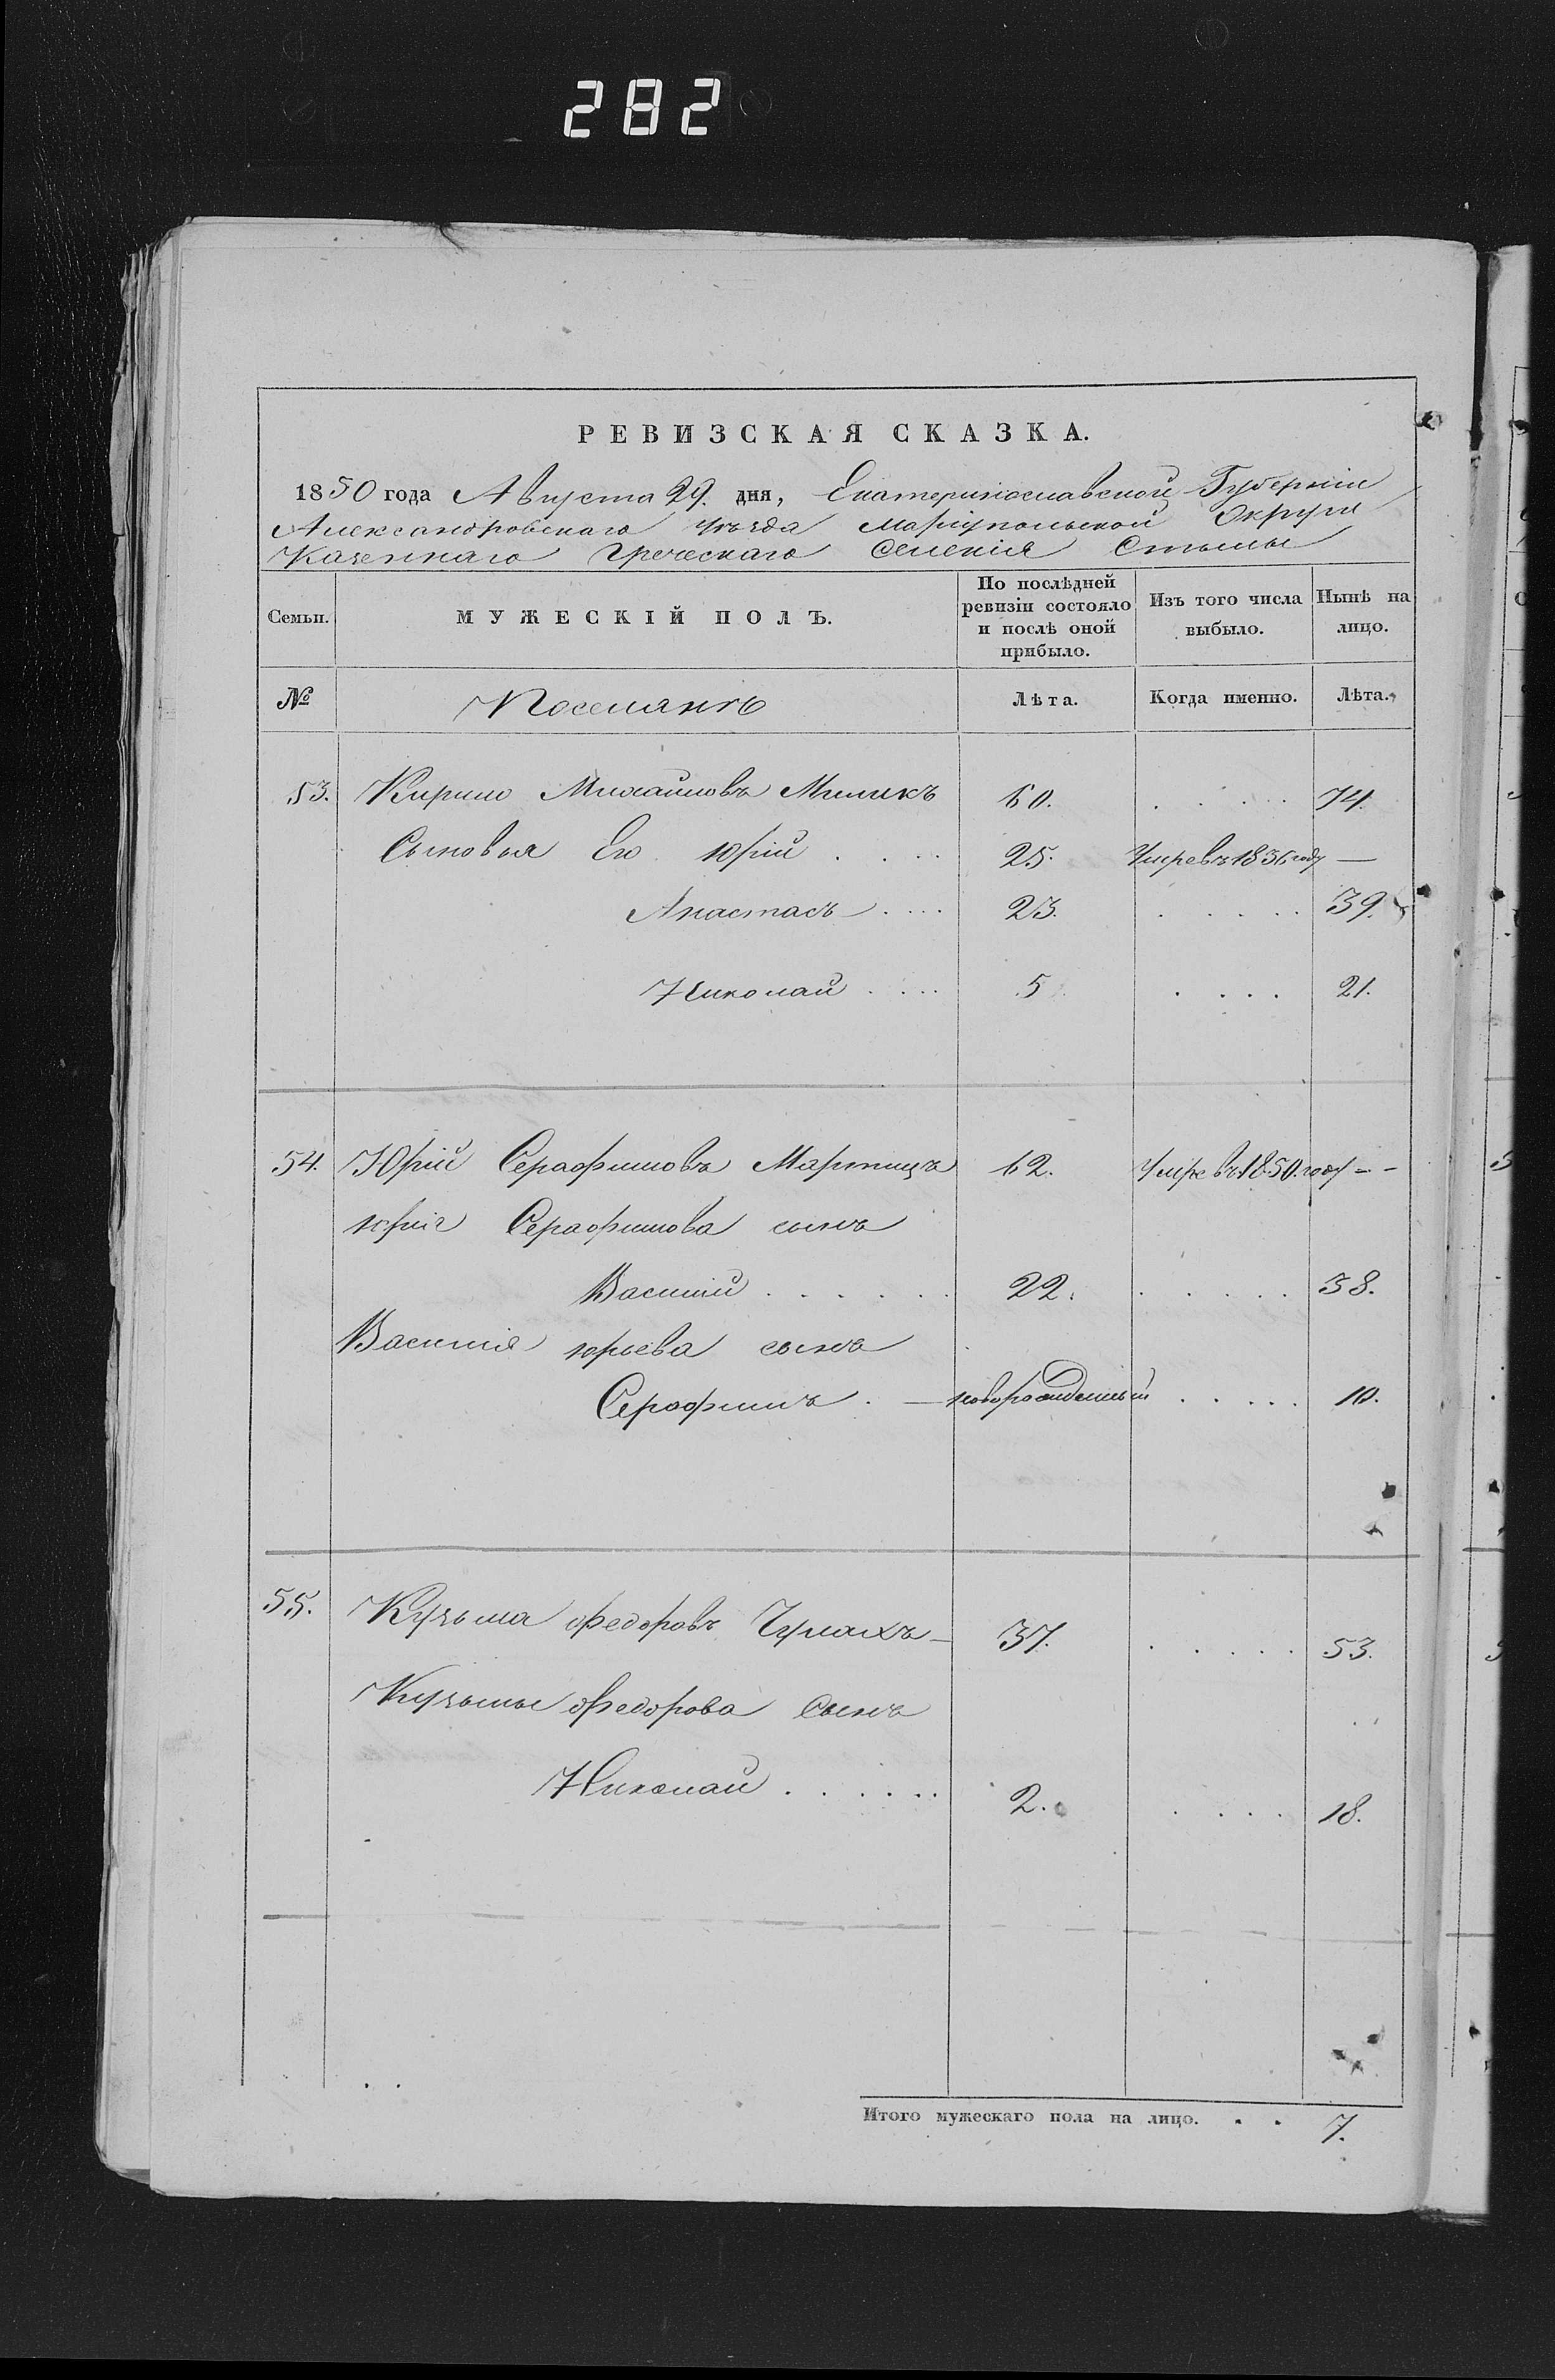 282
РЕВИЗСКАЯ СКАЗКА.
1850 года Августа 29. дня, Екатеринославской Губерніи
Александровскаго уѣзда Маріупольской Округи
Казеннаго Греческаго Селенія Стылы
Семьи. МУЖЕСКІЙ ПОЛЪ. По послѣдней ревизіи состояло и послѣ оной прибыло. Изъ того числа выбыло. Нынѣ на лицо.
№ Поселянъ Лѣта. Когда именно. Лѣта.
53. Кирило Михайловъ 60. . . . . . 74.
Сыновья Его Юрій . . . . 25. Умре въ 1836 году —
Анастасъ . . . . 23. . . . . . 39.
Николай . . . . 5 . . . . 21.
54. Юрій Серафимовъ 62. Умре въ 1850. году - -
Юрія Серафимова сынъ
Василій . . . . . . 22. . . . . . 38.
Василія Юрьева сынъ
Серафимъ . — новорожденный . . . . . 10.
55. Кузьма Федоровъ Чумахъ — 37. . . . . 53.
Кузьмы Федорова Сынъ
Николай . . . . . . 2. . . . . 18.
Итого мужескаго пола на лицо. . . 7.